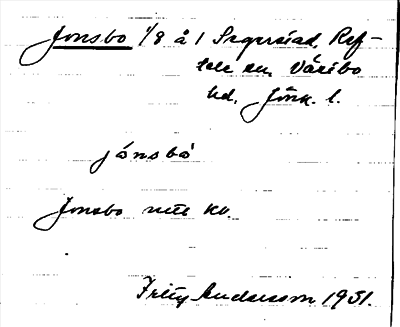 Jonsbo 1/8 å 1 Segerstad, Ref-
tele sn, Västbo
hd. Jönk. l.
jónsbò
Jonsbo mtl kv.
Fritz Andersson 1931.